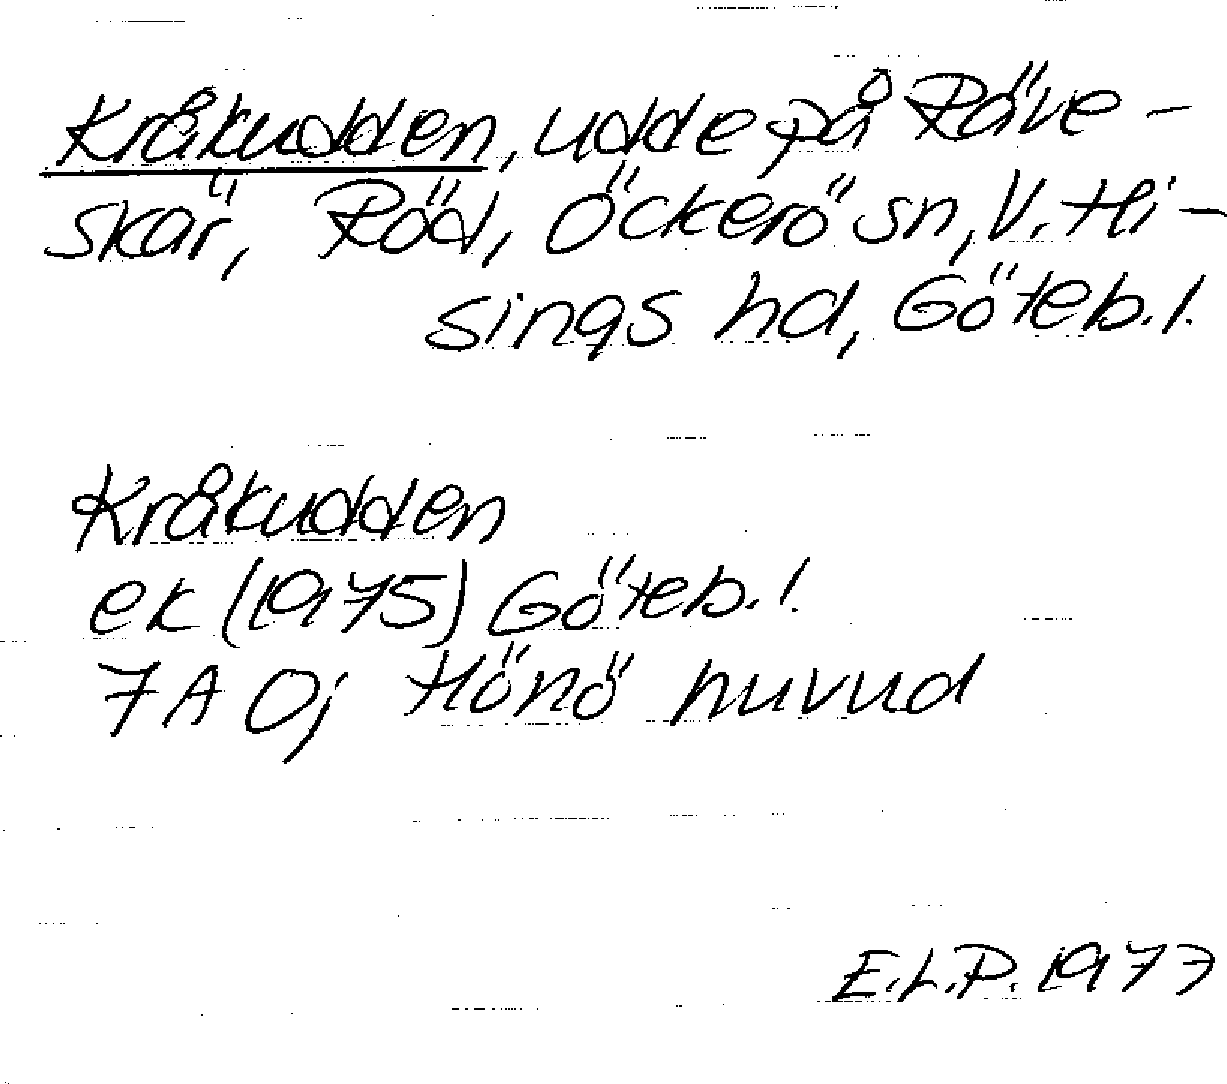 Kråkudden, udde på Räve-
skär, Röd, Öckerö sn, V. Hi-
sings hd, Göteb. l.
Kråkudden
ek (1975) Göteb. l.
7A 0j Hönö huvud
E.L.P. 1977